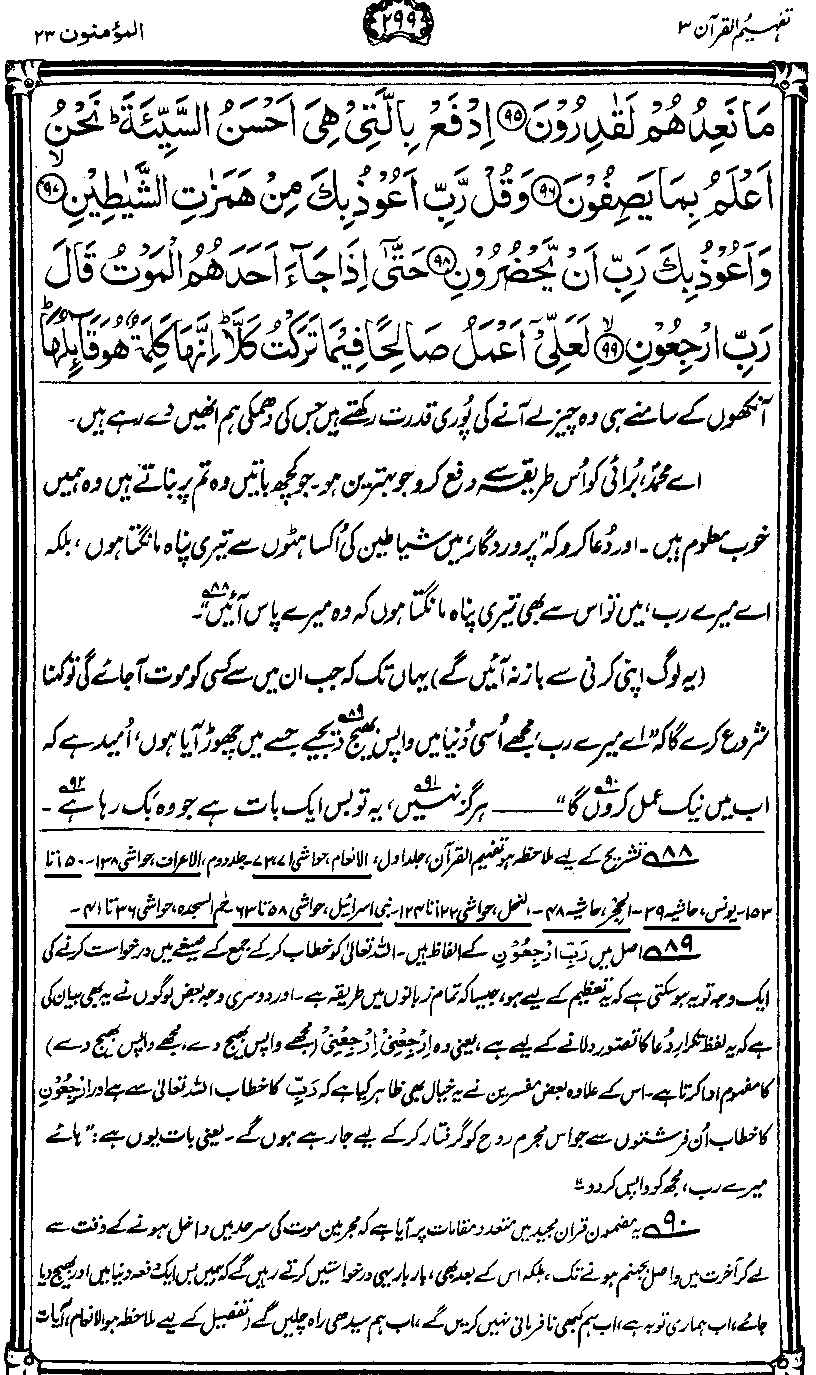 تفہیم القرآن ۳
۲۹۹
المؤمنون ۲۳
مَا نَعِدُهُمْ لَقٰدِرُوْنَ ﴿۹۵﴾ اِدْفَعْ بِالَّتِيْ هِيَ اَحْسَنُ السَّيِّئَةَ ؕ نَحْنُ
اَعْلَمُ بِمَا يَصِفُوْنَ ﴿۹۶﴾ وَقُلْ رَّبِّ اَعُوْذُ بِكَ مِنْ هَمَزٰتِ الشَّيٰطِيْنِ ﴿۹۷﴾ۙ
وَاَعُوْذُ بِكَ رَبِّ اَنْ يَّحْضُرُوْنِ ﴿۹۸﴾ حَتّٰٓى اِذَا جَآءَ اَحَدَهُمُ الْمَوْتُ قَالَ
رَبِّ ارْجِعُوْنِ ﴿۹۹﴾ۙ لَعَلِّيْٓ اَعْمَلُ صَالِحًا فِيْمَا تَرَكْتُ كَلَّا ؕ اِنَّهَا كَلِمَةٌ هُوَ قَآئِلُهَا ؕ
آنکھوں کے سامنے ہی وہ چیز لے آنے کی پُوری قدرت رکھتے ہیں جس کی دھمکی ہم انھیں دے رہے ہیں۔
اے محمدؐ، بُرائی کو اُس طریقہ سے دفع کرو جو بہترین ہو۔ جو کچھ باتیں وہ تم پر بناتے ہیں وہ ہمیں
خوب معلوم ہیں۔ اور دُعا کرو کہ "پروردگار، میں شیاطین کی اُکساہٹوں سے تیری پناہ مانگتا ہوں، بلکہ
اے میرے رب، میں تو اس سے بھی تیری پناہ مانگتا ہوں کہ وہ میرے پاس آئیں۸۸"۔
(یہ لوگ اپنی کرنی سے باز نہ آئیں گے) یہاں تک کہ جب ان میں سے کسی کو موت آجائے گی تو کہنا
شروع کرے گا کہ "اے میرے رب، مجھے اُسی دُنیا میں واپس بھیج۸۹ دیجیے جسے میں چھوڑ آیا ہوں، اُمید ہے کہ
اب میں نیک عمل کروں۹۰ گا" ——— ہرگز نہیں۹۱، یہ تو بس ایک بات ہے جو وہ بک رہا ہے۹۲۔
۸۸ تشریح کے لیے ملاحظہ ہو تفہیم القرآن، جلد اول، الانعام، حواشی ۷۱، ۷۲۔ جلد دوم، الاعراف، حواشی ۱۳۸۔ ۱۵۰ تا
۱۵۳۔ یونس، حاشیہ ۳۹۔ الحجر، حاشیہ ۴۸۔ النحل، حواشی ۱۲۲ تا ۱۲۴۔ بنی اسرائیل، حواشی ۵۸ تا ۶۳۔ حٰم السجدہ، حواشی ۳۶ تا ۴۱۔
۸۹ اصل میں رَبِّ ارْجِعُوْنِ کے الفاظ ہیں۔ اللہ تعالیٰ کو خطاب کر کے جمع کے صیغے میں درخواست کرنے کی
ایک وجہ تو یہ ہو سکتی ہے کہ یہ تعظیم کے لیے ہو، جیسا کہ تمام زبانوں میں طریقہ ہے۔ اور دوسری وجہ بعض لوگوں نے یہ بھی بیان کی
ہے کہ یہ لفظ تکرارِ دُعا کا تصوّر دلانے کے لیے ہے، یعنی وہ اِرْجِعْنِیْ اِرْجِعْنِیْ (مجھے واپس بھیج دے، مجھے واپس بھیج دے)
کا مفہوم ادا کرتا ہے۔ اس کے علاوہ بعض مفسرین نے یہ خیال بھی ظاہر کیا ہے کہ رَبِّ کا خطاب اللہ تعالیٰ سے ہے اور ارْجِعُوْنِ
کا خطاب اُن فرشتوں سے جو اس مجرم روح کو گرفتار کر کے لیے جا رہے ہوں گے۔ یعنی بات یوں ہے: "ہائے
میرے رب، مجھ کو واپس کر دو"۔
۹۰ یہ مضمون قرآن مجید میں متعدد مقامات پر آیا ہے کہ مجرمین موت کی سرحد میں داخل ہونے کے وقت سے
لے کر آخرت میں واصل بجہنم ہونے تک، بلکہ اس کے بعد بھی، بار بار یہی درخواستیں کرتے رہیں گے کہ ہمیں بس ایک دفعہ دنیا میں اور بھیج دیا
جائے، اب ہماری توبہ ہے، اب ہم کبھی نافرمانی نہیں کریں گے، اب ہم سیدھی راہ چلیں گے (تفصیل کے لیے ملاحظہ ہو الانعام، آیات